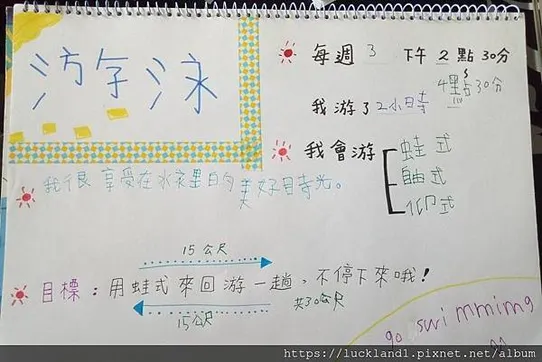 游泳
每週3 下午2點30分
4點30分
我游了2小時
我會游
蛙式
自由式
仰式
我很享受在水裡的美好時光。
15公尺
目標：用蛙式來回游一趟，不停下來哦！
15公尺
共30公尺
go swimming
https://luckland1.pixnet.net/album